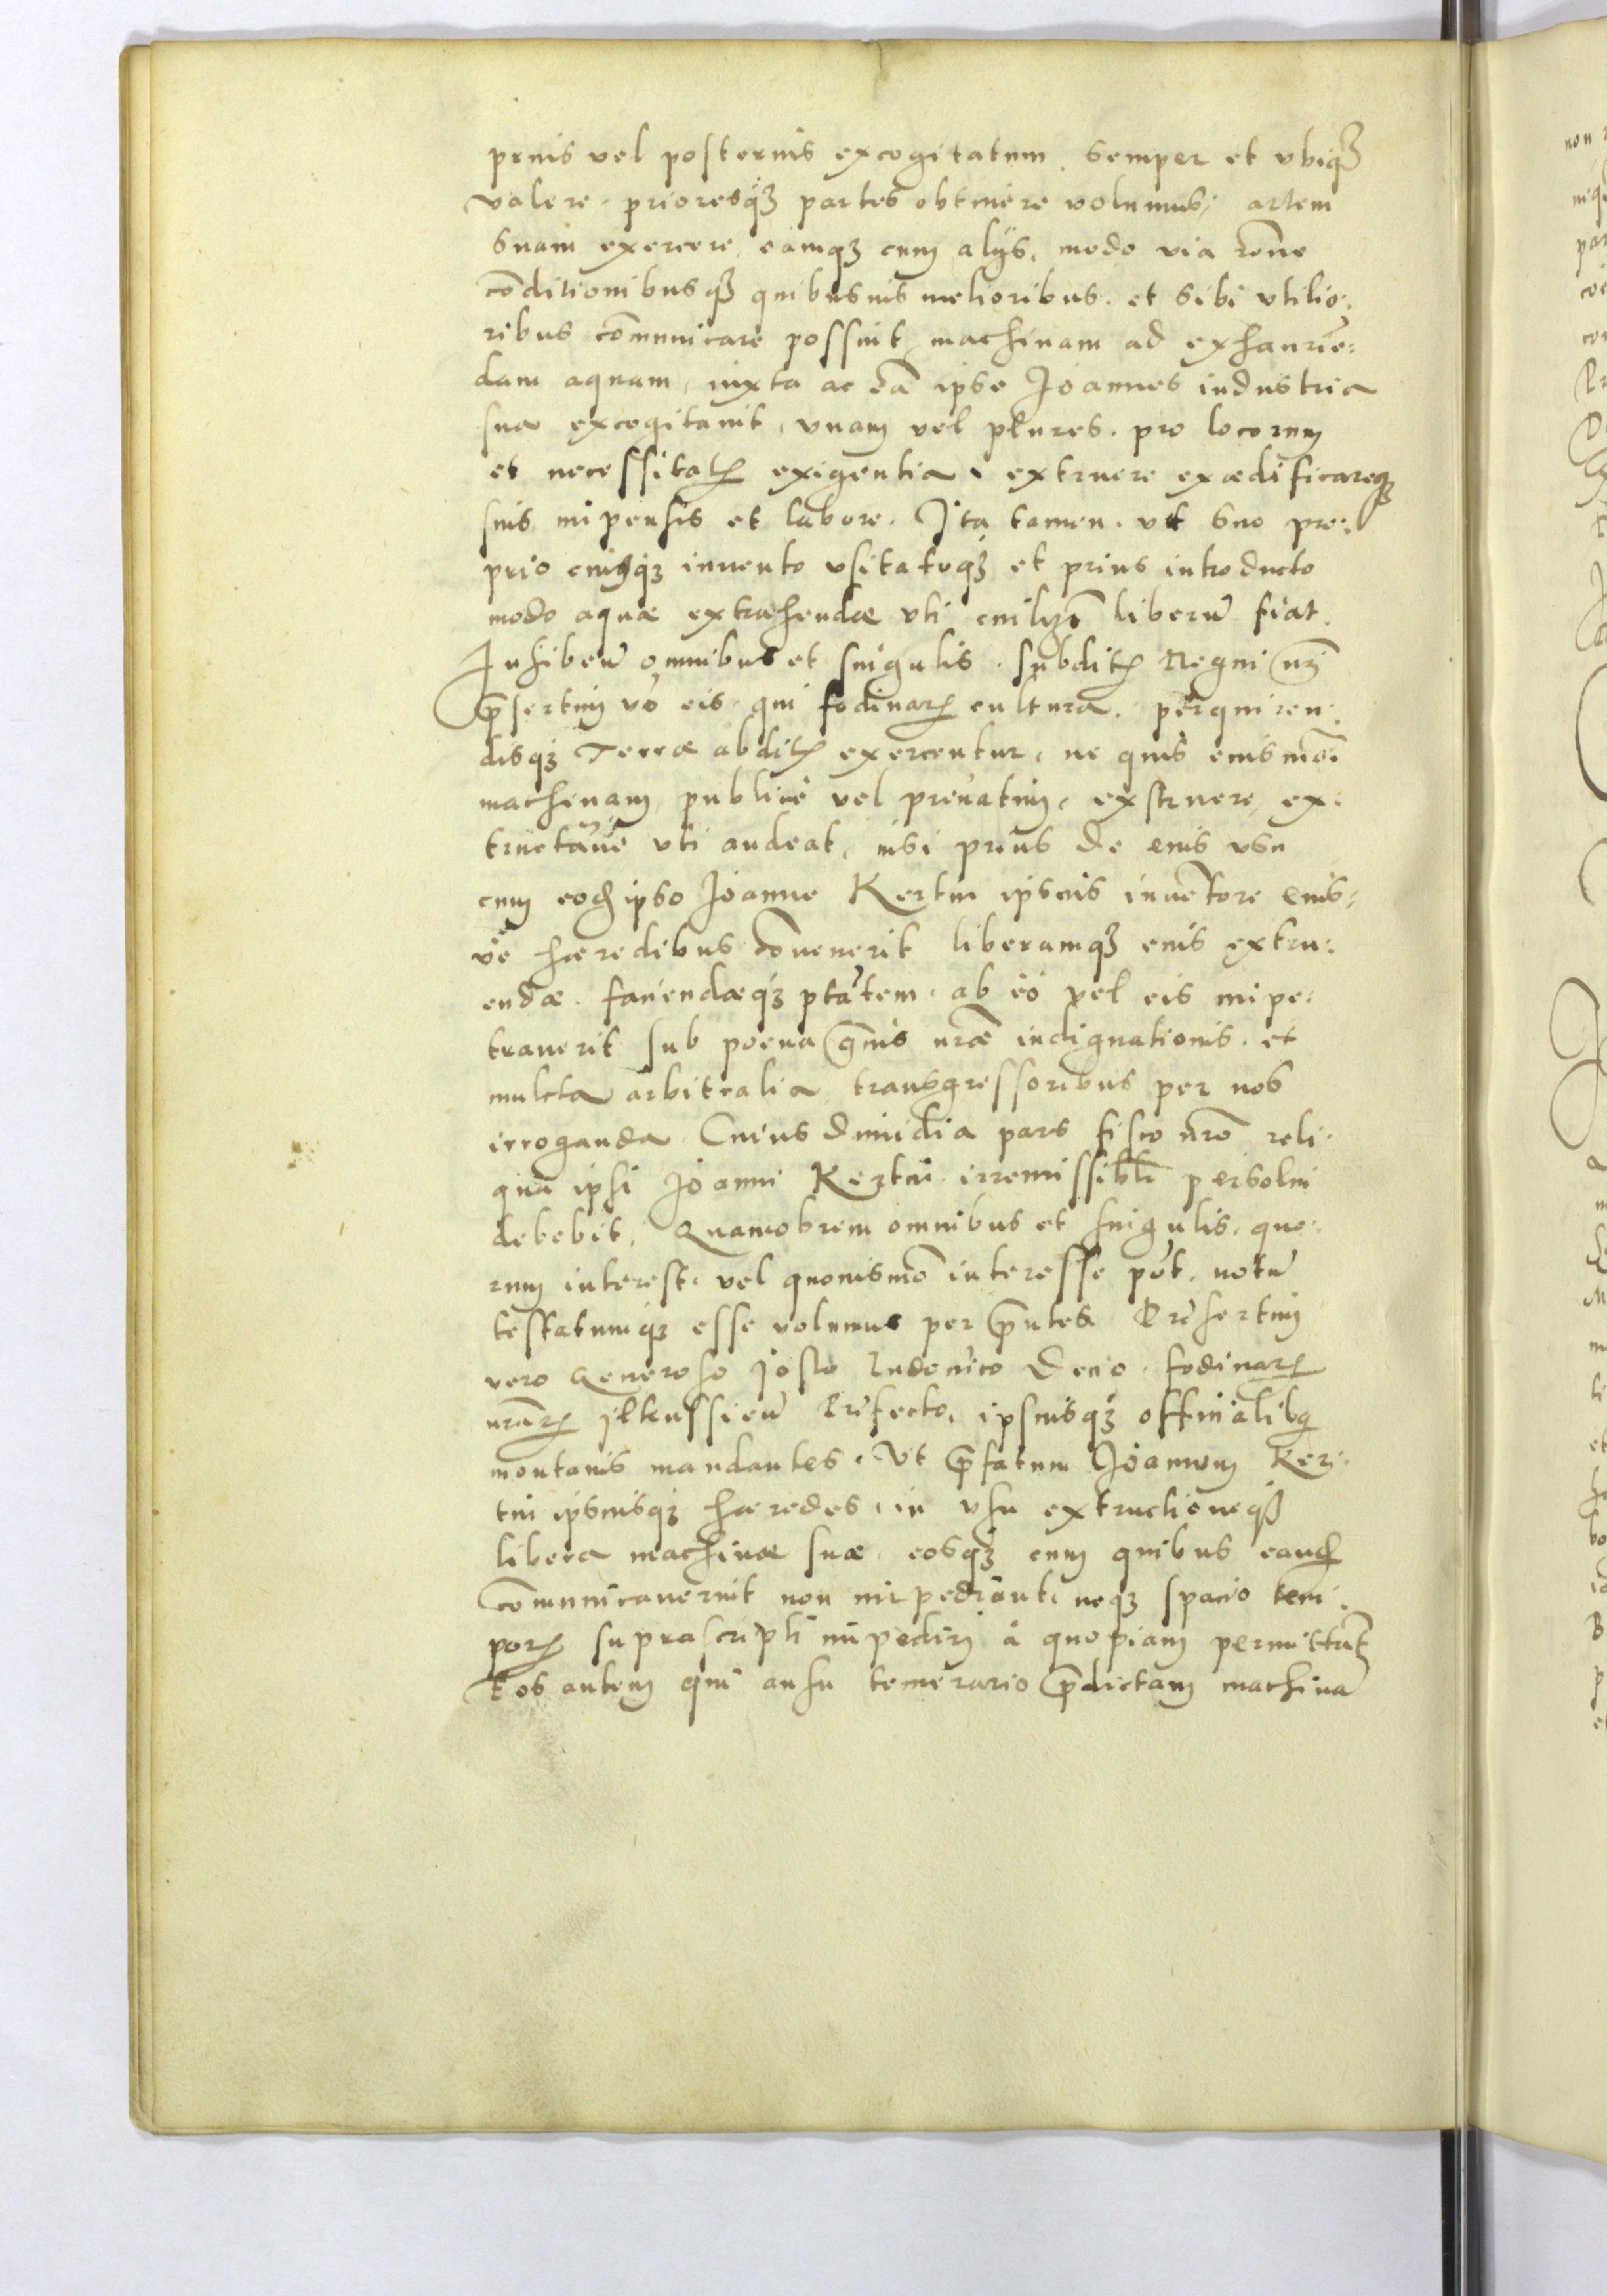 prius vel posterius excogitatum semper et vbiq3
valere, prioresq3 partes obtinere volumus, artem
suam exercere, eamq3 cum alijs, modo via rōne
cōditionibusq3 quibusuis melioribus et sibi vtilio:
ribus cōmunicare possint, machinam ad exhauriē:
dam aquam, iuxta ac eā ipse Joannes industria
sua excogitauit, vnam vel plures pro locorum
et necessitatꝝ exigentia, extruere exædificareq3
suis impensis et labore. Ita tamen, vt suo pro:
prio cuiqꝫ inuento vsitatoq3 et prius introducto
modo aquæ extrahendæ vti cuilibꝫ liberū fiat.
Inhibemꝰ omnibus et singulis subditꝭ Regni nrī
p̄sertim vō eis qui fodinarꝝ cultura, perquiren:
disq3 Terræ abditꝭ exercentur, ne quis eiusmōi
machinam, publice vel priuatim, exstruere, ex:
tructāue vti audeat, nisi prius de eius vsu
cum eodꝫ ipso Joanne Kertin ipsius inuētore eius:
ve hæredibus cōuenerit liberamq3 eius extru:
endæ, fauendæq3 ptātem, ab eo vel eis impe:
trauerit sub poena grāuis nræ indignationis, et
mulcta arbitralia transgressoribus per nos
irroganda. Cuius dimidia pars fisco nrō reli:
qua ipsi Joanni Keztin irremissibłr persolui
debebit. Quamobrem omnibus et singulis, quo:
rum interest, vel quouismō interesse pōt, notū
testatumq3 esse volumus per p̄ntes. Præsertim
vero Generoso Josto Ludouico Decio fodinarꝝ
nrārꝝ Ilkussieñ Præfecto, ipsiusq3 officialibꝰ
montanis mandantes. Vt p̄fatum Joannem Ker:
tin ipsiusq3 hæredes, in vsu extructioneq3
libera machinæ suæ, eosq3 cum quibus eandꝫ
cōmunicauerint non impediant, neq3 spacio tem:
porꝭ suprascripti impediri à quopiam permittāt
Eos autem qui ausu temerario p̄dictam machinā